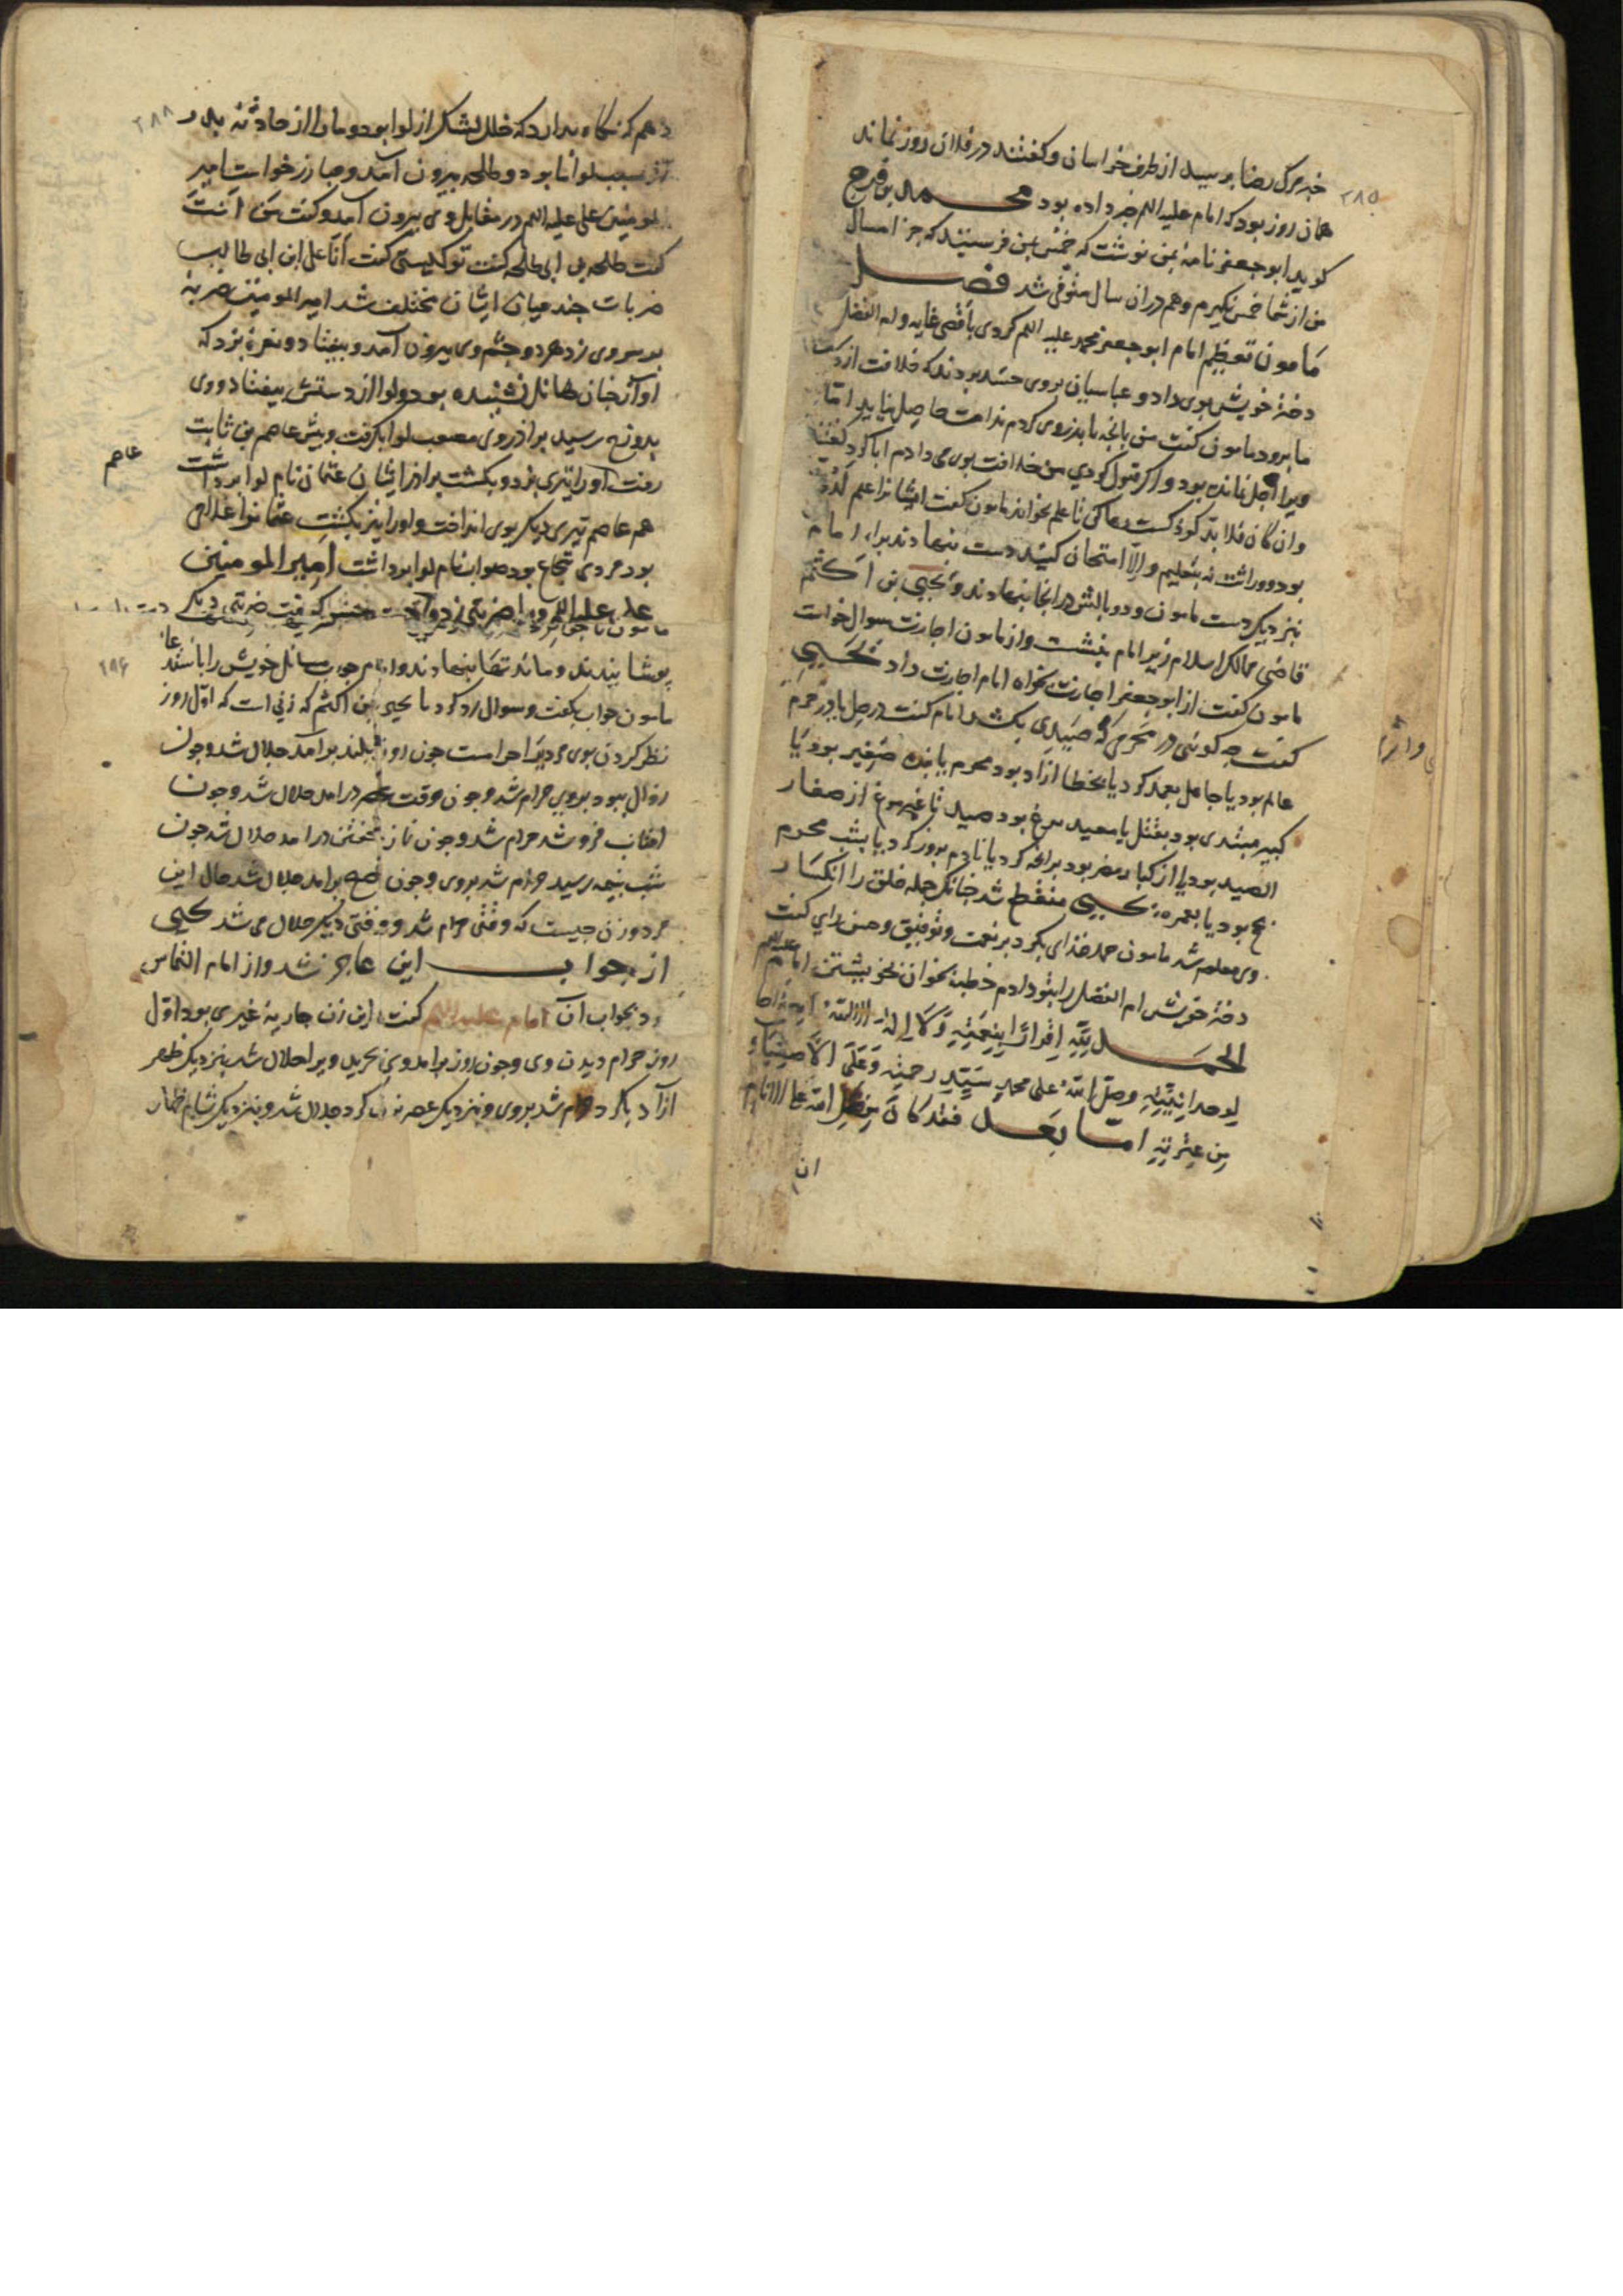 ۲۸۵
خبر مرگ رضا برسید از طرف خراسان و کفتند در فلان روز نماند
همان روز بود که امام علیه السلم خبر داده بود محمد بن فرج
کوید ابو جعفر نامهٔ بمن نوشت که خمس بمن فرستید که جز امسال
من از شما خمس نکیرم و هم در آن سال متوفی شد فصل
مأمون تعظیم امام ابو جعفر محمد علیه السلم کردی باقصی غایه و ام الفضل
دختر خویش بوی داد و عباسیان بروی حسد بردند که خلافت از دست
ما برود مامون کفت من بانچه با پدر وی کردم ندامت حاصل نیاید اما
ویرا اجل نمانده بود و اگر قبول کردی من خلافت بوی می دادم ابا کرد کفتند
وان کان فلا بد کودکست رها کن تا علم بخواند مامون کفت ایشانرا علم لدنی
بود و وراثت نه بتعلیم والا امتحان کنید دست بنهادند برای امام
بنزدیک دست مامون و دو بالش در انجا بنهادند و یحیی بن اکثم
قاضی ممالک اسلام زیر امام بنشست و از مامون اجازت سوال خواست
مامون کفت از ابو جعفر اجازت بخواه امام اجازت داد یحیی
کفت چه کوئی در محرمی که صیدی بکشد امام کفت در حل یا در حرم
عالم بود یا جاهل بعمد کرد یا بخطا ازاد بود محرم یا بنده صغیر بود یا
کبیر مبتدی بود بقتل یا معید مرغ بود صید یا غیر مرغ از صغار
الصید بود یا از کبار مصر بود برانچه کرد یا نادم بروز کرد یا بشب محرم
بحج بود یا بعمره یحیی منقطع شد چنانکه جمله خلق را انکسار
وی معلوم شد مامون حمد خدای بکرد بر نعمت و توفیق و حسن رای کفت
دختر خویش ام الفضل را بتو دادم خطبه بخوان بخویشتن امام علیه السلم
الحمد لله اقرارا بنعمته و لا اله الا الله
لوحدانیته وصلی الله علی محمد سید رحمته وعلی الاصفیاء
من عترته اما بعد فقد کان من فضل الله علی الانام
ان
۲۸۸
دهم که نکاه بدارد که خلل لشکر از لوا بود و مارا از حادثهٔ بدر
از سبب لوانا بود و طلحه بیرون آمد و مبارز خواست امیر
المومنین علی علیه السلم در مقابل وی بیرون آمد و کفت من انت
کفت طلحه بن ابی طلحه کفت تو کیستی کفت انا علی ابن ابی طالب
ضربات چند میان ایشان مختلف شد امیر المومنین ضربهٔ
بر سر وی زد هر دو چشم وی بیرون آمد و بیفتاد و نعرهٔ بزد که
اواز چنان هائل نشنیده بود و لوا از دستش بیفتاد و وی
بدوزخ رسید برادر وی مصعب لوا بکرفت و پیش عاصم بن ثابت
رفت اورا تیری بزد و بکشت برادر ایشان عثمان نام لوا برداشت
عاصم
هم عاصم تیری دیکر بوی انداخت و اورا نیز بکشت عثمانرا غلامی
بود مردی شجاع بود صواب نام لوا برداشت امیر المومنین
علی علیه السلم ویرا ضربتی زد
۲۸۶
بپوشانیدند و مائده نهادند
مامون جواب بکفت و سوال رد کرد با یحیی بن اکثم که زنی است که اول روز
نظر کردن بوی مردیرا حرامست چون روز بلند برآمد حلال شد و چون
زوال ببود بروی حرام شد و چون وقت عصر درامد حلال شد و چون
افتاب فرو شد حرام شد و چون نماز خفتن درامد حلال شد چون
شب بنیمه رسید حرام شد بروی و چون صبح برامد حلال شد حال این
مرد و زن چیست که وقتی حرام شد و وقتی دیکر حلال می شد یحیی
از جواب این عاجز شد و از امام التماس
کرد بجواب آن امام علیه السلم کفت این زن جاریهٔ غیری بود اول
روز حرام دیدن وی و چون روز برامد وی بخرید ویرا حلال شد بنزدیک ظهر
ازاد بکرد حرام شد بروی و بنزدیک عصر نکاح کرد حلال شد و بنزدیک شام ظهار